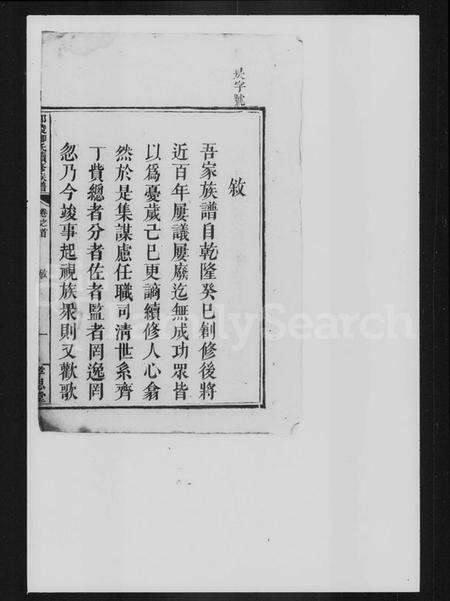 字號
敘
吾家族譜自乾隆癸巳創修後將
近百年屢議屢廢迄無成功眾皆
以爲憂歲己巳更謫續修人心翕
然於是集謀慮任職司清世系齊
丁費總者分者佐者監者罔逸罔
忽乃今竣事起視族衆則又歡歌
氏續修族譜
卷之首
敘
一
思堂
FamilySearch